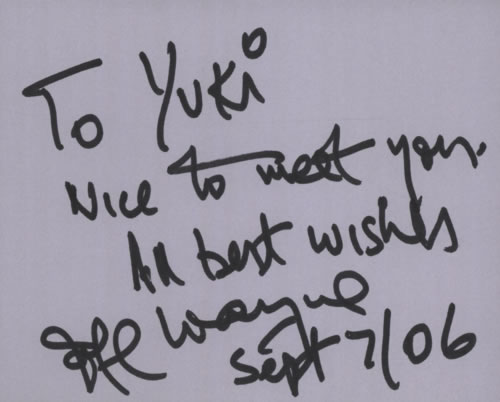 To Yuki
Nice to meet you.
All best wishes
Jeff Wayne
Sept 7/06